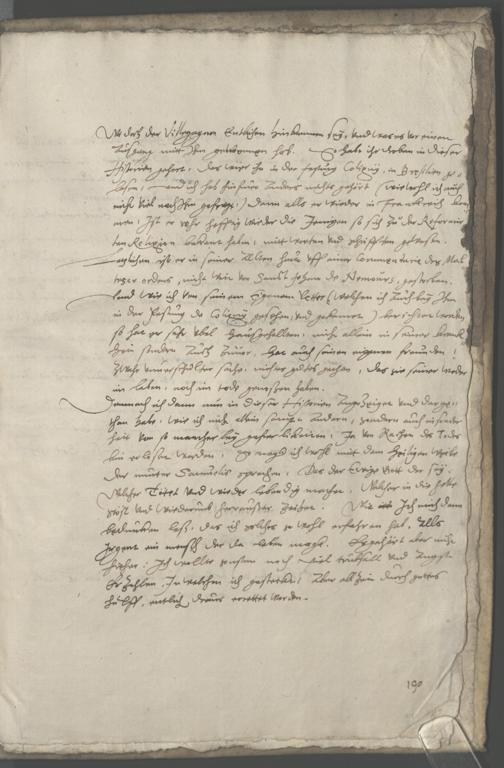 Wo doch der Villegagnon Entlichen hinkommen sey, und was es vor einen
Ausgang mitt Ihm genommen hab. So habt ihr droben in dieser
Historien gehort, das wir Ihn in der festung Coligny, in Brasilien ge-
lassen, und ich hab hinfüro anders nichts gehört (wiewohl ich auch
nicht viel nach Ihm gefragt) dann alls er wieder in Franckreich kom-
men, Ist er sehr hefftig wieder die Jenigen so sich zu der Reformir-
ten Religion bekant haben, mitt worten und schrifften gewesen.
Letzlichen ist er in seiner alten haut uff einer Commenturie des Mal-
teser ordens, nicht weit von Sanct Johann de Nemours, gestorben.
Und wie ich von seinem eigenen Vetter (welchen ich auch bey Ihm
in der Festung de Coligny gesehen, und gekannt) berichtet worden,
so hat er sehr übel haussgehalten, nicht allein in seiner kranck-
heit sondern auch zuvor, hat auch seinen eigenen freunden,
nichts gutes gethan, das sie seiner weder
im leben, noch im todt genossen haben.
Demnach ich dann nun in dieser Historien angezeiget und darge-
than habe, wie ich nicht allein sampt andern, sondern auch insonder-
heit von so mancherley gefar, Ja von Rachen des Todes
bin erlöset worden, So mag ich wohl mit dem heiligen Weibe
der mutter Samuelis sprechen, das der Ewige Gott der sey,
Welcher Tötet und wieder lebendig machet, Welcher in die helle
stöst und wiederumb heraussen ziehet. Wie Ich mich dann
bedüncken lass, das ich solches so wohl erfahren hab, alls
jrgent ein mensch der da leben magk. gehört aber nicht
hieher. Ich wollte sonsten noch viel trübsall und Angst
Erzehlen, In welchen ich gestecket, Aber allzeit durch gottes
hülff, entlich draus errettet worden.
190